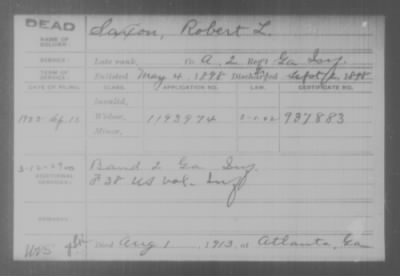 DEAD
NAME OF SOLDIER: Saxon, Robert L.
SERVICE: Late rank, Co A. 2 Reg't Ga Inf.
TERM OF SERVICE: Enlisted May 4, 1898 Discharged 1898
DATE OF FILING. CLASS. APPLICATION NO. LAW. CERTIFICATE NO.
Invalid,
Widow, 1193974 937883
Minor,
3-12-29
ADDITIONAL SERVICES: Band 2 Ga Inf.
F 38 US Vol. Inf
REMARKS:
Died Aug 1, 1913, at Atlanta, Ga